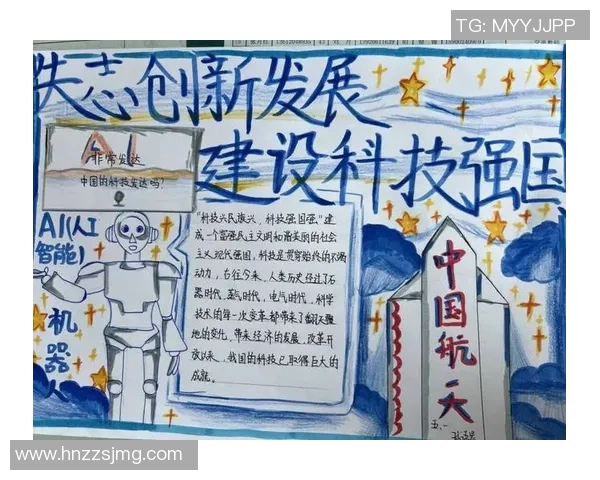 TG: MYYJJPP
矢志创新发展
建设科技强国
AI
非常发达
中国的科技发达吗?
AI(人工
智能)
机
器
人
"科技兴民族兴,科技强国强"建
成一个富强民主文明和谐美丽的社会
主义现代强国,科技是贯穿始终的不竭
动力,古往今来,人类历史经过了石
器时代,蒸气时代,电气时代,科学
技术的每一次变革都带来了翻天覆
地的变化,带来经济的发展,改革开
放以来,我国的科技已取得巨大的
成就。
中
国
航
天
五、一
www.hnzzsjmg.com